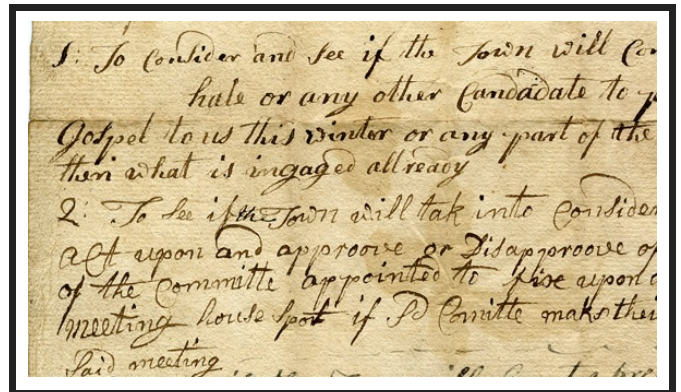 1: To Consider and see if the Town will Con
hale or any other Candadate to p
Gospel to us this winter or any part of the
then what is ingaged allready
2: To see if the Town will tak into Consider
act upon and approove or Disapproove of
of the Committe appointed to fixe upon a
meeting house spot if Sd Comitte maks thei
said meeting